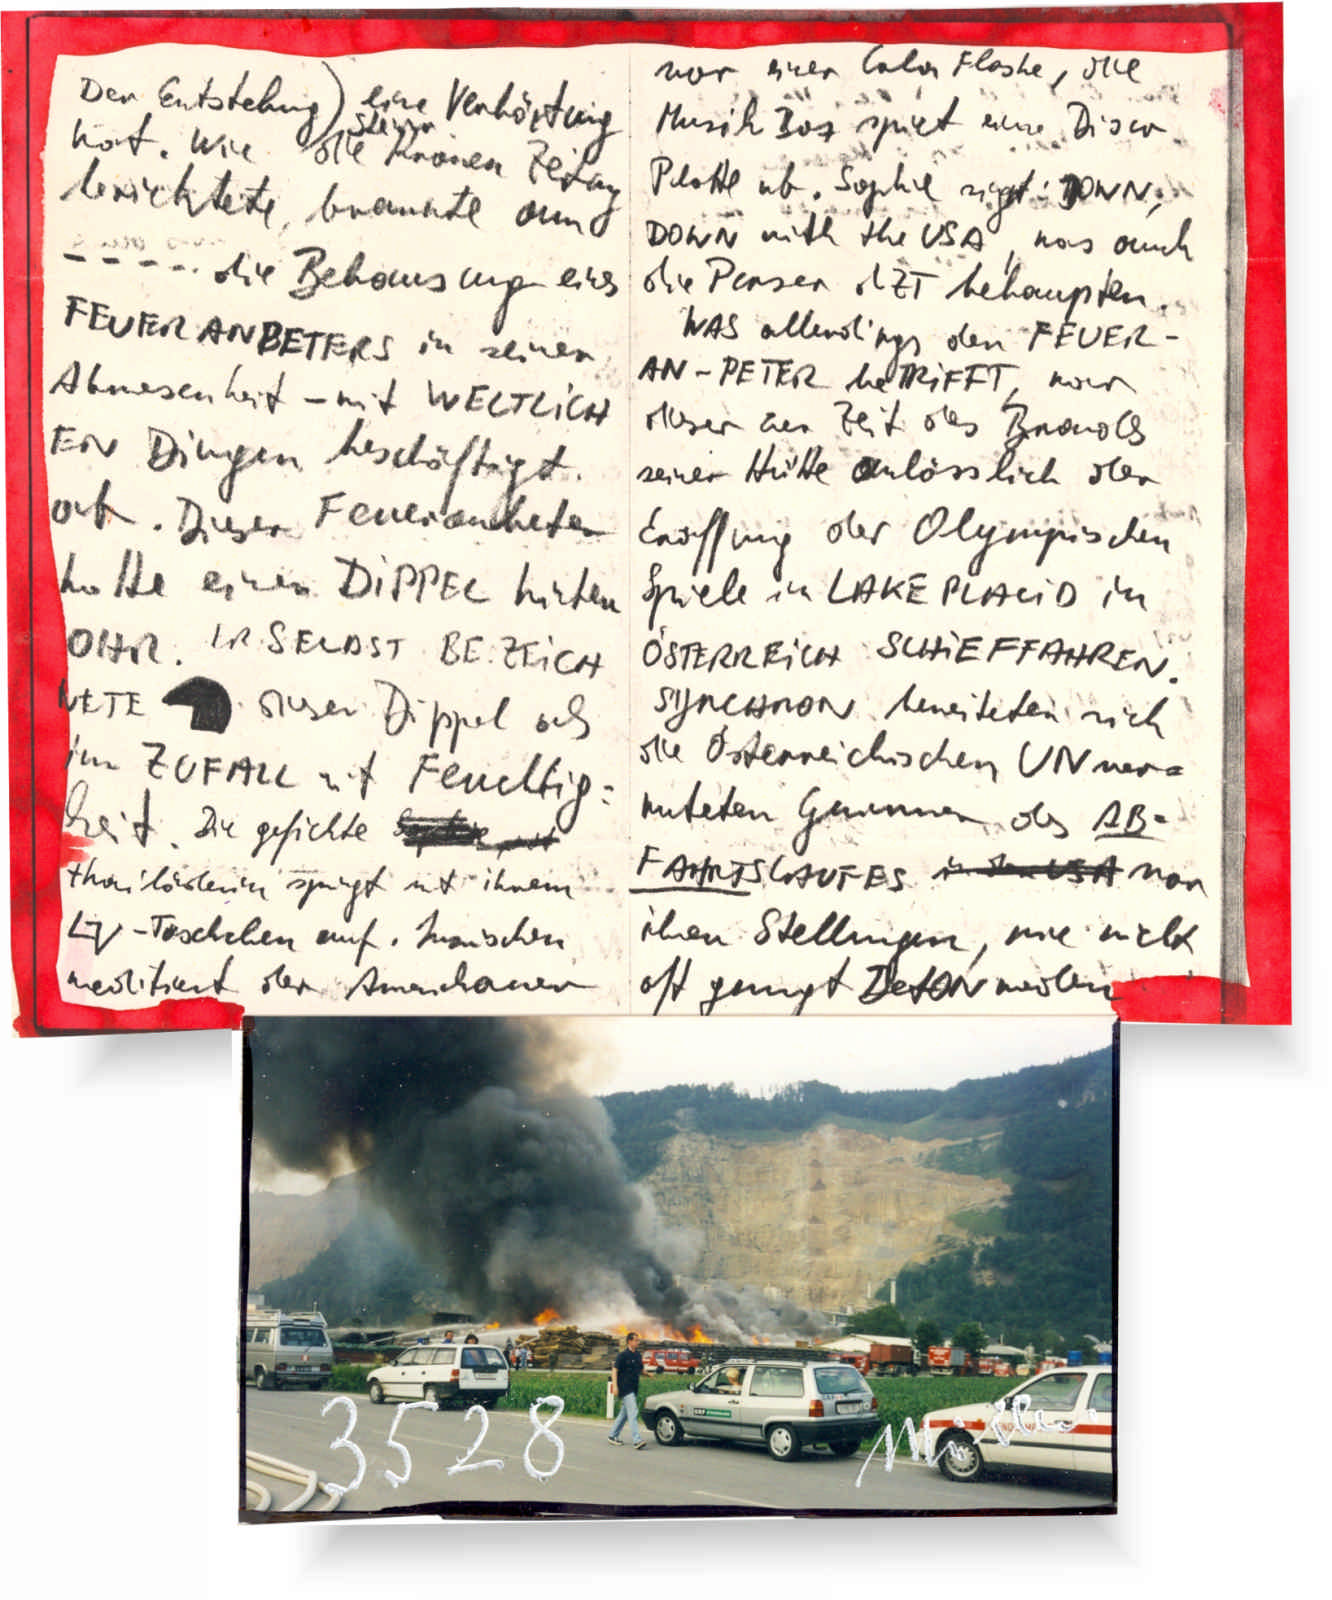 Der Entstehung) eine Verhärtung
hat. Wie die Kronen Zeitung
Steirer
berichtete, brannte am
– – – – . die Behausung eines
FEUERANBETERS in seiner
Abwesenheit – mit WELTLICH
EN Dingen beschäftigt.
ab. Dieser Feueranbeter
hatte einen DiPPEL hinten
OHR. IR SELBST BEZEiCH
NETE dieser Dippel als
im ZUFALL mit Feuchtig=
keit. Die gefickte
thailänderin springt mit ihrem
LV-Taschchen auf. Inzwischen
meditiert der Amerikaner
vor einer Cola Flashe, die
Musik Box spielt eine Disco
Platte ab. Sophie singt: DOWN,
DOWN with the USA, was auch
die Perser dZT behaupten.
WAS allerdings den FEUER-
AN-PETER beTRiFFT, war
dieser zur Zeit des Brandes
seiner Hütte anlässlich der
Eröffnung der Olympischen
Spiele in LAKE PLACiD in
ÖSTERREiCH SCHiEFFAHREN.
SYNCHRON bereiteten sich
die Österreichischen UNver=
muteten Gewinner des AB=
FAHRTSLAUFES in den USA von
ihren Stellungen, wie nicht
oft genugt DetON werden
3528